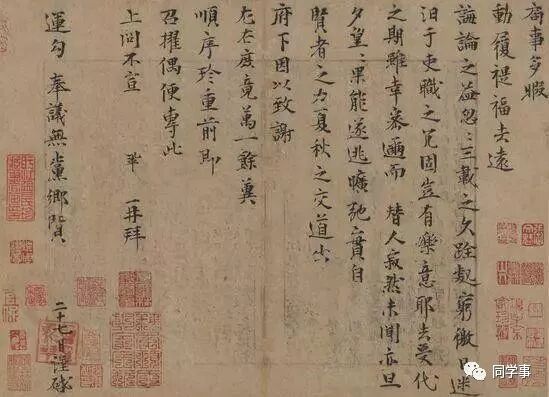 局事多暇
動履禔福去遠
誨論之益忽〻三載之久跧處窮徼日迷
汨于吏職之冗固豈有樂意耶去受代
之期雖幸密邇而替人寂然未聞亦旦
夕望〻果能遂逃曠弛實自
賢者之力夏秋之交道出
府下因以致謝
左右庶竟萬一餘冀
順序珍重前即
召擢偶便專此
上問不宣 鞏 再拜
運勾奉議無黨鄉賢
二十七日謹啓
同学事